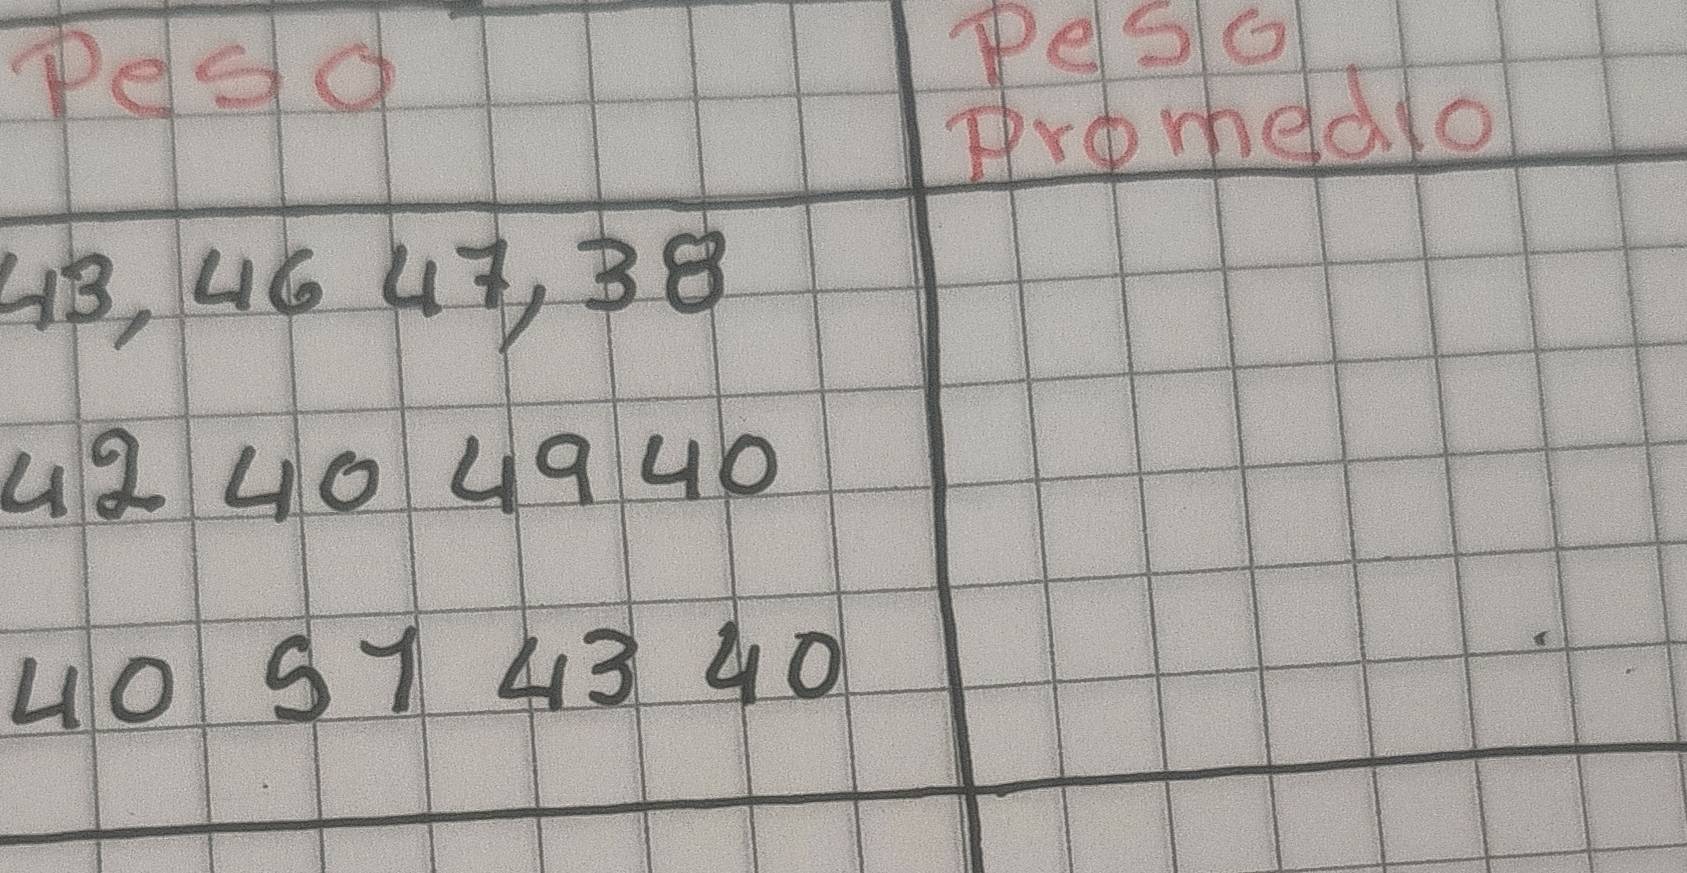 Peso
Peso
Promedio
43, 46 47, 38
42 40 49 40
40 51 43 40